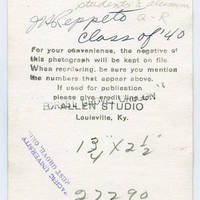 students & alumni
Q-R
J H Reppeto
Class of '40
For your convenience, the negative of
this photograph will be kept on file.
When reordering, be sure you mention
the numbers that appear above.
If used for publication
please give credit line to
STUDIO
Louisville, Ky.
1 3/4 X 2 1/2
PACIFIC UNIVERSITY
FOREST GROVE, ORE.
27290